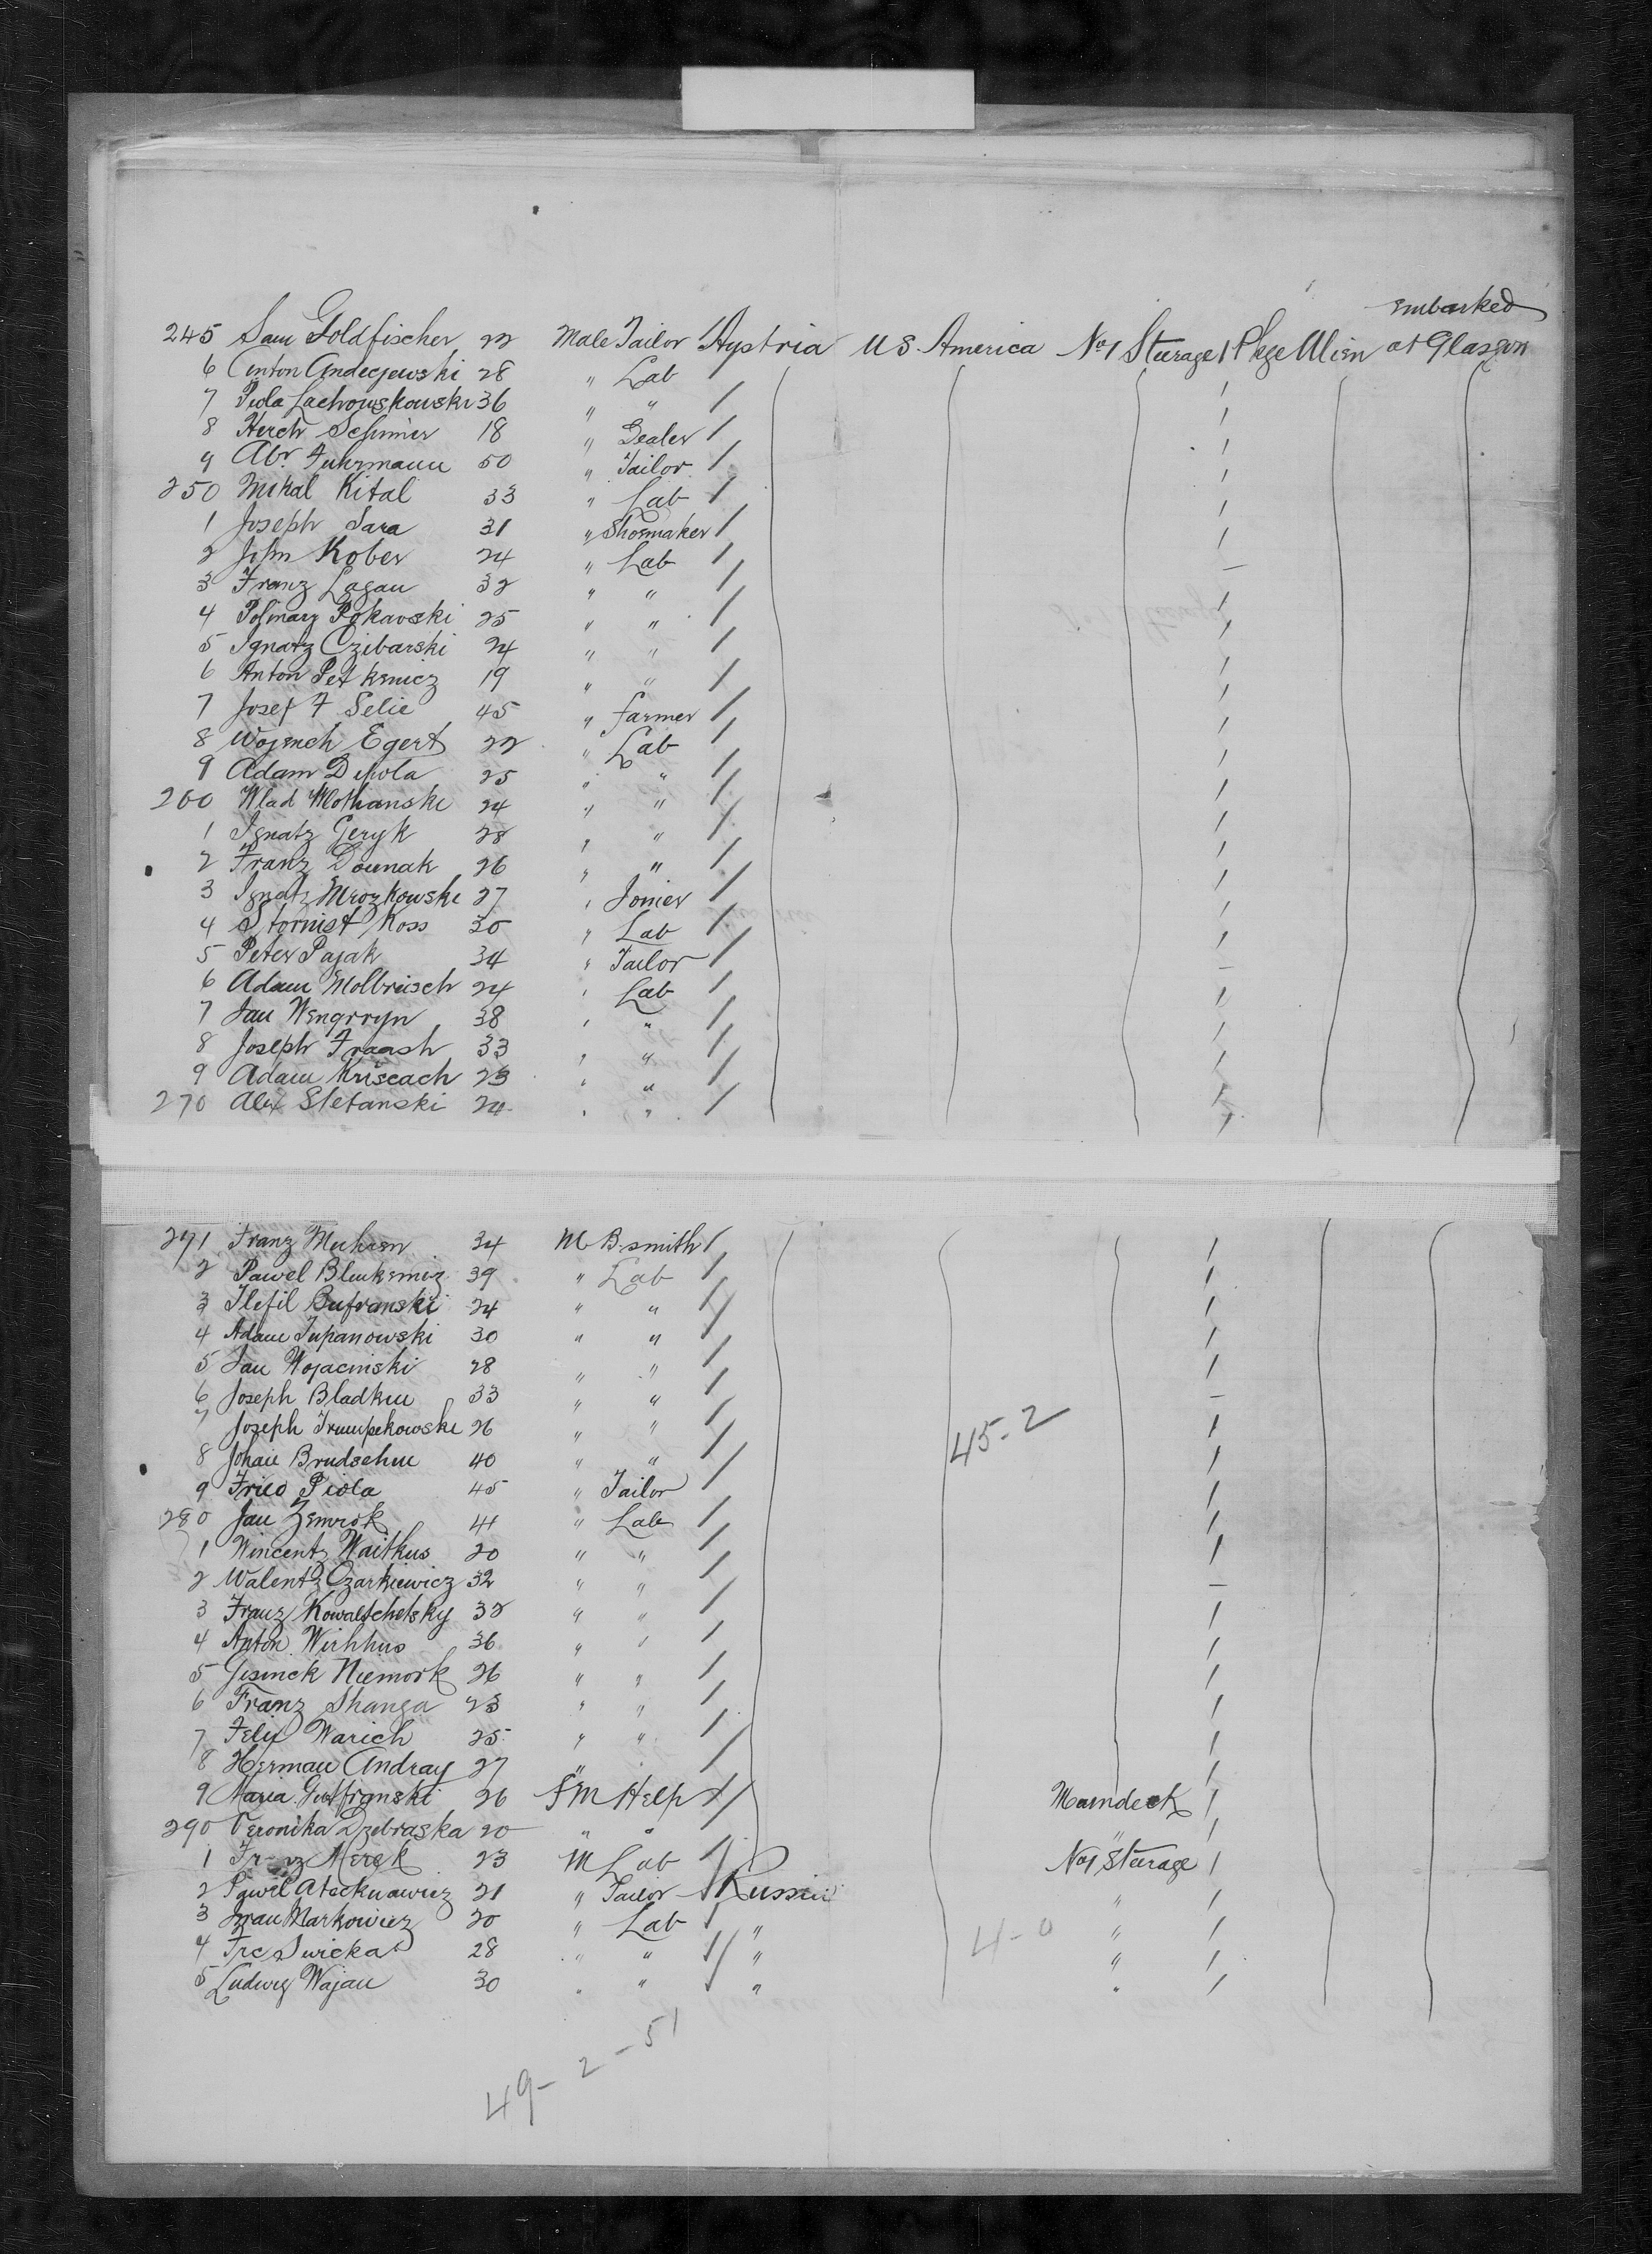 embarked
245 Sam Goldfischer 22 Male Tailor Austria U S. America No 1 Steerage 1 Pkge Alien at Glasgow
6 Anton Andecjewski 28 " Lab
7 Piola Lachowskowski 36 " "
8 Herch Schimer 18 " Dealer
9 Abr. Fuhrmann 50 " Tailor
250 Mikal Kital 33 " Lab
1 Joseph Sara 31 " Shoemaker
2 John Kober 24 " Lab
3 Franz Lagau 32 " "
4 Pokavski 25 " "
5 Ignatz Czibarski 24 " "
6 Anton Petkenicz 19 " "
7 Josef F Selic 45 " farmer
8 Wojench Egert 22 " Lab
9 Adam Depola 25 " "
260 Wlad Wlothanski 24 " "
1 Ignatz Geryk 28 " "
2 Franz Dounak 26 " "
3 Ignatz Mrozkowski 27 " Joiner
4 Stornist Koss 30 " Lab
5 Peter Pajak 34 " Tailor
6 Adam Molbrisch 24 " Lab
7 Jan Wengrryn 38 " "
8 Joseph Fraash 33 " "
9 Adam Kriseach 23 " "
270 Alex Stefanski 24 " "
271 Franz Muhren 34 M B.smith
2 Pawel Blukemicz 39 " Lab
3 Bufranski 24 " "
4 Adam Jupanowski 30 " "
5 Jan Wojacinski 28 " "
6 Joseph Bladkin 33 " "
7 Joseph Trumpekowski 26 " "
45-2
8 Johan Brudsehn 40 " "
9 Frico Piola 45 " Tailor
280 Jan Zemrok 41 " Lab
1 Wincentz Waitkus 20 " "
2 Walentz Ozarkiewicz 32 " "
3 Franz Kowaltchetsky 32 " "
4 Anton Wirhhus 36 " "
5 Jismck Niemork 26 " "
6 Franz Shanga 23 " "
7 Felix Warich 25 " "
8 Herman Andray 27 " "
9 Maria Gutfranski 26 FM Help Maindeck
290 Veronika Dzebraska 20 " " "
1 Franz Merek 23 M Lab No 1 Steerage
2 Pawel 21 " Tailor Russia "
3 Markowicz 20 " Lab " "
4-0
4 Frc Swicka 28 " " " "
5 Ludwig Wajau 30 " " " "
49-2-51